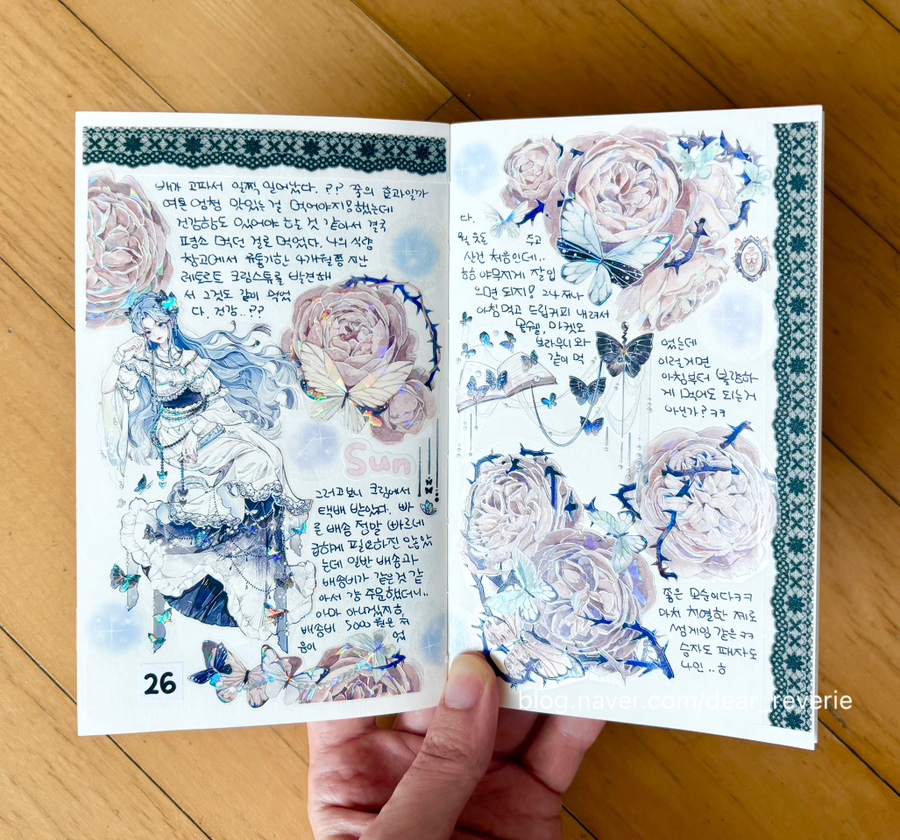 배가 고파서 일찍 일어났다. ?? 줌의 효과일까
여튼 엄청 맛있는걸 먹어야지! 했는데
건강함도 있어야 할 것 같아서 결국
평소 먹던 걸로 먹었다. 나의 식량
창고에서 유통기한 4개월쯤 지난
레토르트 크림스튜를 발견해
서 그것도 같이 먹었
다. 건강..??
Sun
그러고보니 크림에서
택배 받았다. 빠
른 배송 정말 빠르네
급하게 필요하진 않았
는데 일반 배송과
배송비가 같은것 같
아서 걍 주문했더니..
아마 아니겠지ㅎ
배송비 5000원은 처
음이
26
다.
주고
사건 처음인데..
ㅎㅎ 야무지게 잘 입
으면 되지! 24
아침먹고 드립커피 내려서
몽쉘, 마켓오
브라우니와
같이 먹
었는데
이럴거면
아침부터 불량하
게 먹어도 되는거
아닌가?ㅋㅋ
좋은 모순이다ㅋㅋ
마치 치열한 제로
썸게임 같은ㅋㅋ
승자도 패자도
나인..ㅎ
blog.naver.com/dear_reverie